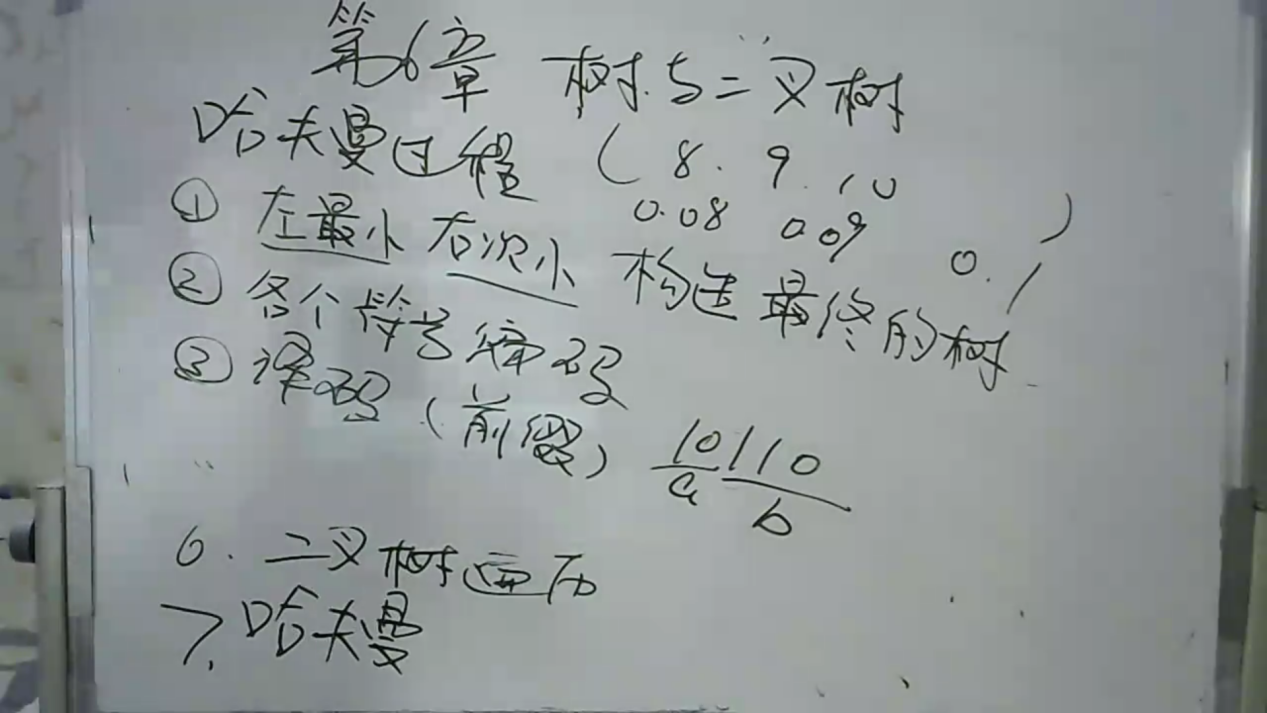 第6章 树与二叉树
哈夫曼过程 ( 8. 9. 10 )
0.08 0.09 0.1
① 左最小 右次小 构造最终的树
② 各个符号编码
③ 译码 (前缀) 10110
a b
6. 二叉树遍历
7. 哈夫曼